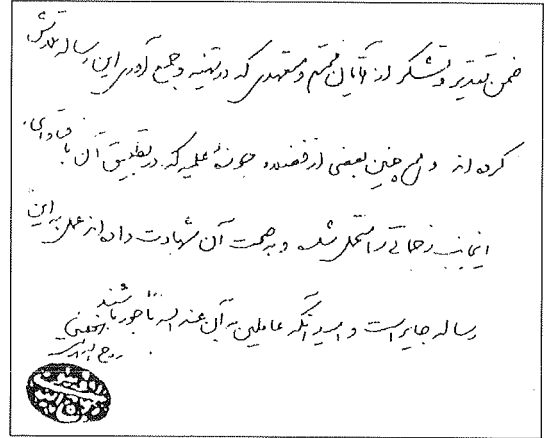 ضمن تقدیر و تشکر از آقایان محترم و متعهدی که در تهیه و جمع آوری این رساله تلاش
کرده‌اند و همچنین بعضی از فضلاء حوزهٔ علمیه که در تطبیق آن با فتاوای
اینجانب زحماتی را متحمل شده و به صحت آن شهادت داده‌اند عمل به این
رساله جایز است و امید آنکه عاملین به آن عند الله مأجور باشند
روح الله الموسوی الخمینی